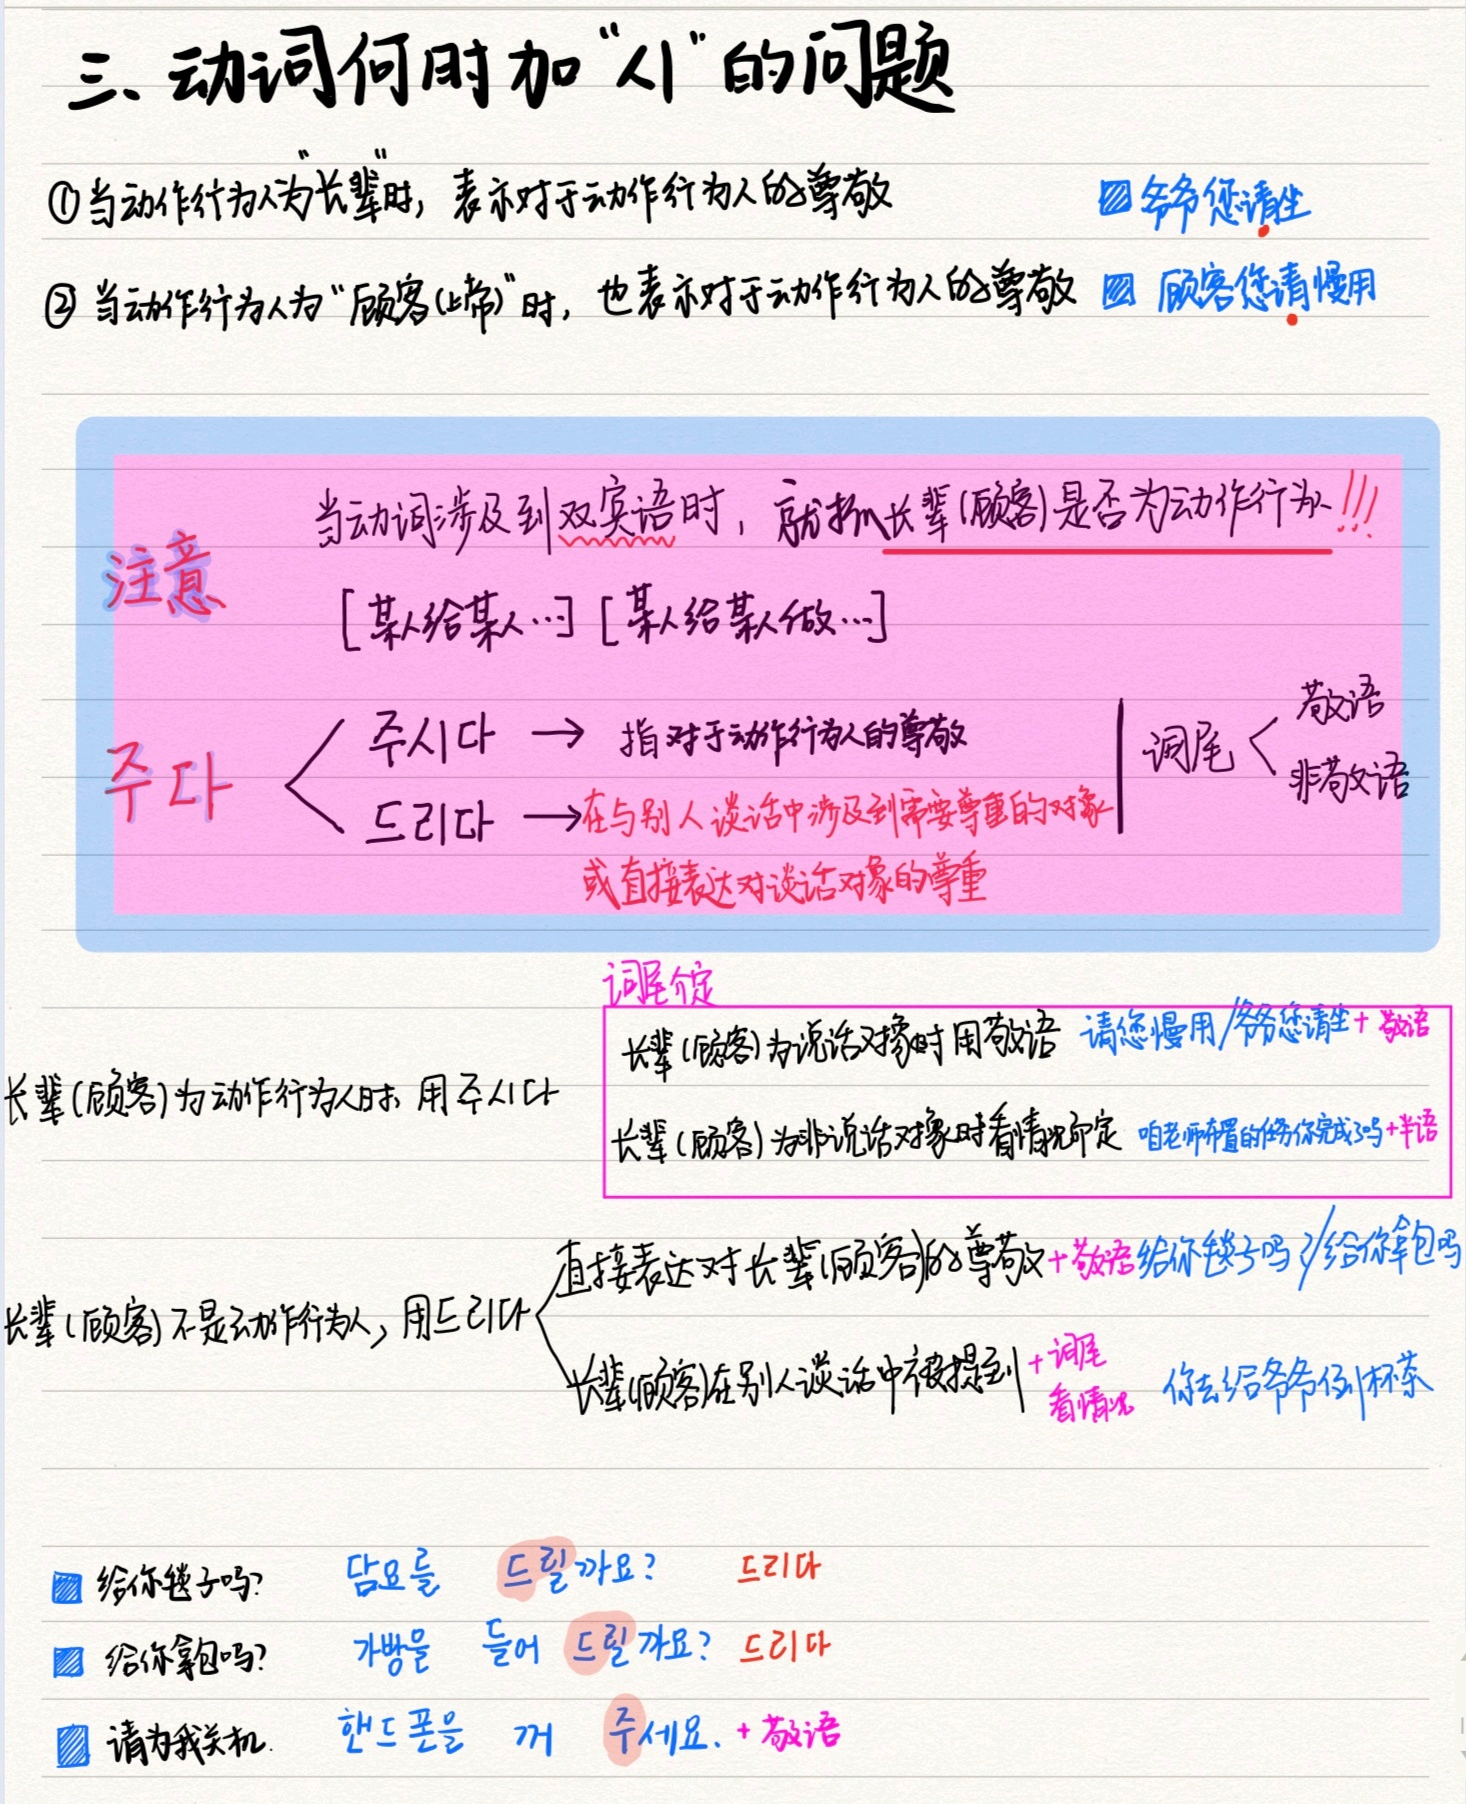 三、动词何时加“시”的问题
①当动作行为人为“长辈”时，表示对于动作行为人的尊敬
爷爷您请坐
②当动作行为人为“顾客(上帝)”时，也表示对于动作行为人的尊敬
顾客您请慢用
注意
当动词涉及到双宾语时，就抓长辈(顾客)是否为动作行为人!!!
[某人给某人…] [某人给某人做…]
주다
주시다 → 指对于动作行为人的尊敬
드리다 → 在与别人谈话中涉及到需要尊重的对象
或直接表达对谈话对象的尊重
词尾
敬语
非敬语
词尾介定
长辈(顾客)为动作行为人时，用주시다
长辈(顾客)为说话对象时用敬语 请您慢用/爷爷您请坐+敬语
长辈(顾客)为非说话对象时看情况而定 咱老师布置的任务你完成了吗+半语
长辈(顾客)不是动作行为人，用드리다
直接表达对长辈(顾客)的尊敬+敬语 给你毯子吗?/给你拿包吗
长辈(顾客)在别人谈话中被提到+词尾
看情况
你去给爷爷倒杯茶
给你毯子吗? 담요를 드릴까요? 드리다
给你拿包吗? 가방을 들어 드릴까요? 드리다
请为我关机. 핸드폰을 꺼 주세요. +敬语